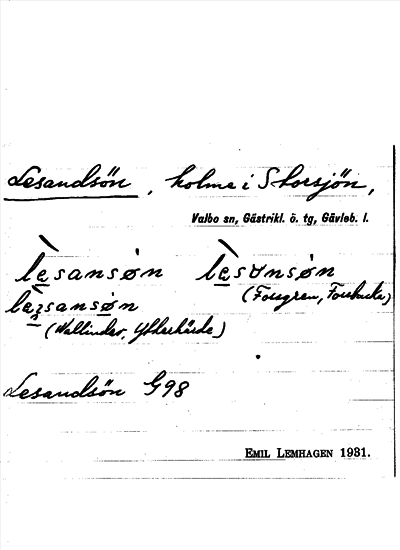 Lesandsön, holme i Storsjön,
Valbo sn, Gästrikl. ö. tg, Gävleb. l.
lesansøn lesɑnsøn
(Forsgren, Forsbacka)
lesansøn
(Wallinder, Ytterhärde)
Lesandsön G98
EMIL LEMHAGEN 1931.